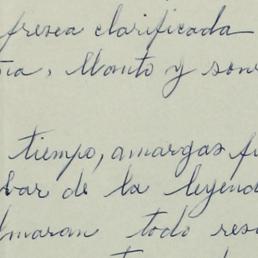 fresca clarificada
ia, llanto y son
tiempo, amargas fu
bar de la leyend
lmaran todo res